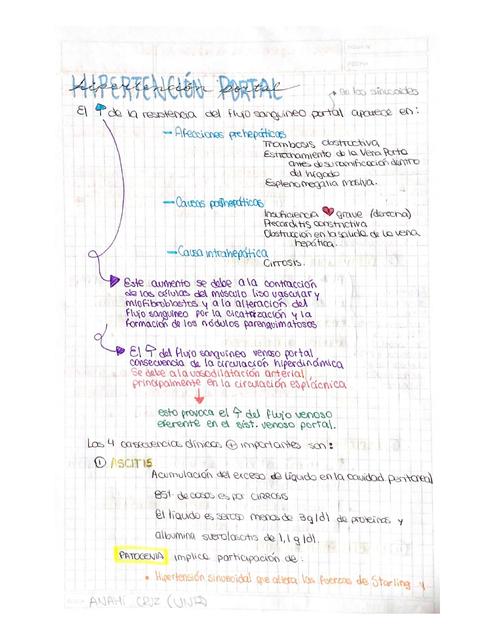 HIPERTENCIÓN PORTAL
hipertención portal
de los sinusoides
El ↑ de la resistencia del flujo sanguineo portal aparece en:
Afecciones prehepáticas
Trombosis obstructiva
Estrechamiento de la Vena Porta
antes de su ramificación dentro
del hígado
Esplenomegalia masiva.
Causas posthepáticas
Insuficiencia ❤ grave (derecha)
Pericarditis constrictiva
Obstrucción en la salida de la vena
hepática.
Causa intrahepática
Cirrosis.
Este aumento se debe a la contracción
de las células del músculo liso vascular y
miofibroblastos y a la alteración del
flujo sanguineo por la cicatrización y la
formación de los nódulos parenquimatosos
El ↑ del flujo sanguineo venoso portal
consecuencia de la circulación hiperdinámica
Se debe a la vasodilatación arterial
principalmente en la circulación esplácnica
esto provoca el ↑ del flujo venoso
eferente en el sist. venoso portal.
Las 4 consecuencia clínicas + importantes son:
① ASCITIS
Acumulación del exceso de líquido en la cavidad peritoneal
85% de casos es por CIRROSIS
El líquido es seroso menos de 3g/dl de proteínas y
albumina suero/ascitis de 1,1 g/dl.
PATOGENIA implica participación de:
• Hipertensión sinusoidal que altera las fuerzas de Starling y
ANAHÍ CRUZ